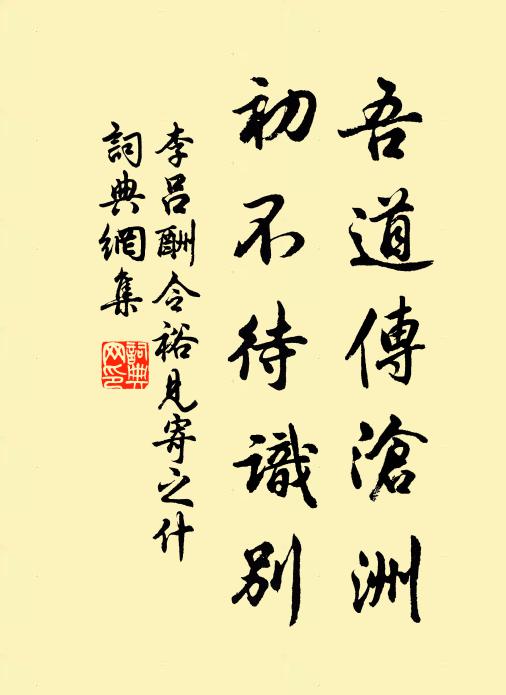 吾道傳滄洲
初不待識別
李呂酬令裕見寄之什
詞典網集
詞典網印